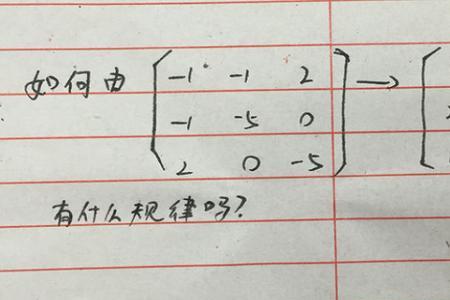 如何由 (-1 -1 2 → (
-1 -5 0
2 0 -5)
有什么规律吗?